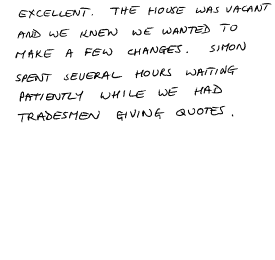 EXCELLENT. THE HOUSE WAS VACANT
AND WE KNEW WE WANTED TO
MAKE A FEW CHANGES. SIMON
SPENT SEVERAL HOURS WAITING
PATIENTLY WHILE WE HAD
TRADESMEN GIVING QUOTES.